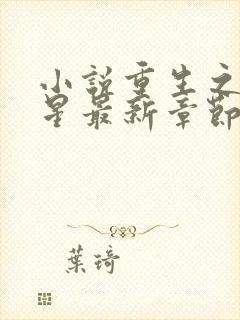 小說重生之
星最新章節
葉琦